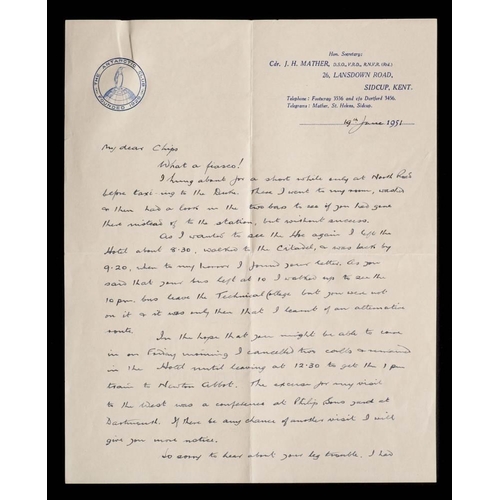 THE ANTARCTIC CLUB
FOUNDED 1929
Hon. Secretary:
Cdr. J. H. MATHER, D.S.O., V.R.D., R.N.V.R. (Ret.)
26, LANSDOWN ROAD,
SIDCUP, KENT.
Telephone: Footscray 5556 and c/o Dartford 3456.
Telegrams: Mather, St. Helens, Sidcup.
19th June 1951.
My dear Chips
What a fiasco!
I hung about for a short while only at North Road
before taxi-ing to the Duke. There I went to my room, washed
& then had a look in the two bars to see if you had gone
there instead of to the station, but without success.
As I wanted to see the Hoe again I left the
Hotel about 8.30, walked to the Citadel, & was back by
9.20, when to my horror I found your letter. As you
said that your bus left at 10 I walked up to see the
10 pm. bus leave the Technical College but you were not
on it & it was only then that I learnt of an alternative
route.
In the hope that you might be able to come
in on Friday morning I cancelled two calls & remained
in the Hotel until leaving at 12.30 to get the 1 pm
train to Newton Abbot. The excuse for my visit
to the West was a conference at Philip & Sons yard at
Dartmouth. If there be any chance of another visit I will
give you more notice.
So sorry to hear about your leg trouble. I had